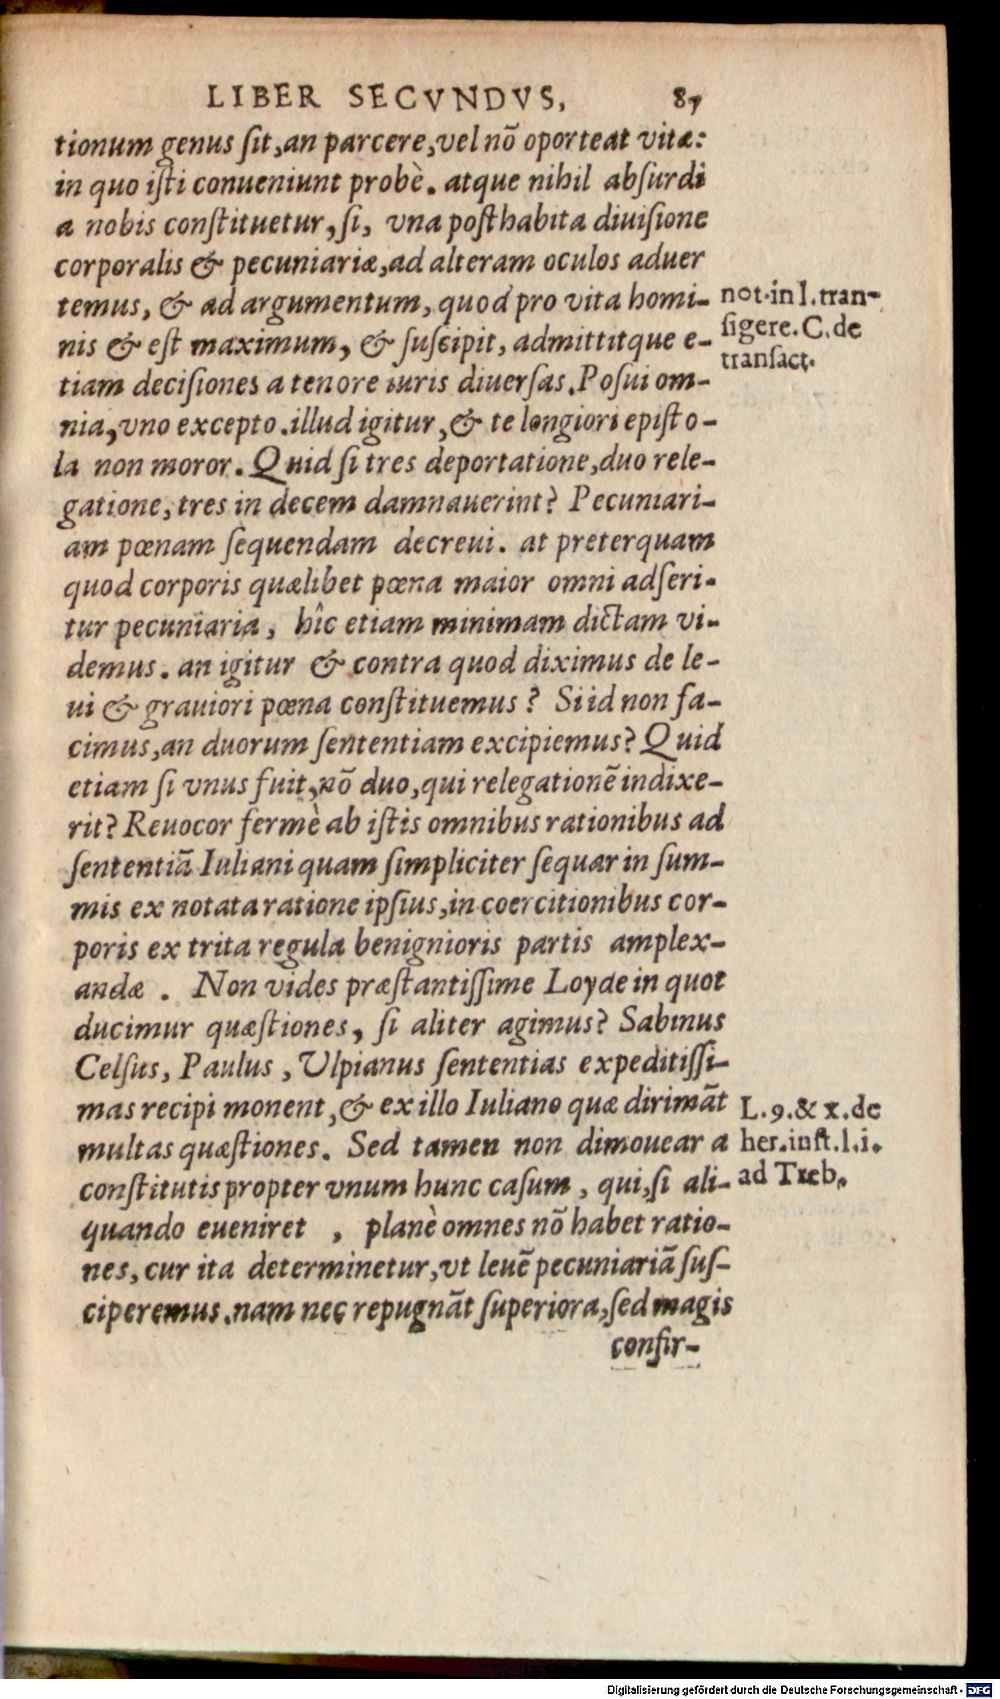 LIBER SECVNDVS, 87
tionum genus ſit,an parcere,vel nõ oporteat vitæ:
in quo iſti conueniunt probè. atque nihil abſurdi
a nobis conſtituetur, ſi, vna poſthabita diuiſione
corporalis & pecuniariæ,ad alteram oculos aduer
temus, & ad argumentum, quod pro vita homi-
not.in l. tran-
nis & eſt maximum, & ſuſcipit, admittitque e-
ſigere. C. de
tiam deciſiones a tenore iuris diuerſas. Poſui om-
tranſact.
nia, vno excepto. illud igitur, & te longiori epiſto-
la non moror. Quid ſi tres deportatione, duo rele-
gatione, tres in decem damnauerint? Pecuniari-
am pœnam ſequendam decreui. at preterquam
quod corporis quælibet pœna maior omni adſeri-
tur pecuniaria, hîc etiam minimam dictam vi-
demus. an igitur & contra quod diximus de le-
ui & grauiori pœna conſtituemus? Si id non fa-
cimus, an duorum ſententiam excipiemus? Quid
etiam ſi vnus fuit, nõ duo, qui relegationẽ indixe-
rit? Reuocor fermè ab iſtis omnibus rationibus ad
ſententiã Iuliani quam ſimpliciter ſequar in ſum-
mis ex notata ratione ipſius, in coercitionibus cor-
poris ex trita regula benignioris partis amplex-
andæ . Non vides præſtantiſſime Loyde in quot
ducimur quæſtiones, ſi aliter agimus? Sabinus
Celſus, Paulus, Ulpianus ſententias expeditiſſi-
mas recipi monent, & ex illo Iuliano quæ dirimãt
L. 9. & x. de
multas quæſtiones. Sed tamen non dimouear a
her. inſt. l. i.
conſtitutis propter vnum hunc caſum, qui, ſi ali-
ad Treb.
quando eueniret , planè omnes nõ habet ratio-
nes, cur ita determinetur, vt leuẽ pecuniariã ſuſ-
ciperemus. nam nec repugnãt ſuperiora, ſed magis
confir-
Digitalisierung gefördert durch die Deutsche Forschungsgemeinschaft - DFG